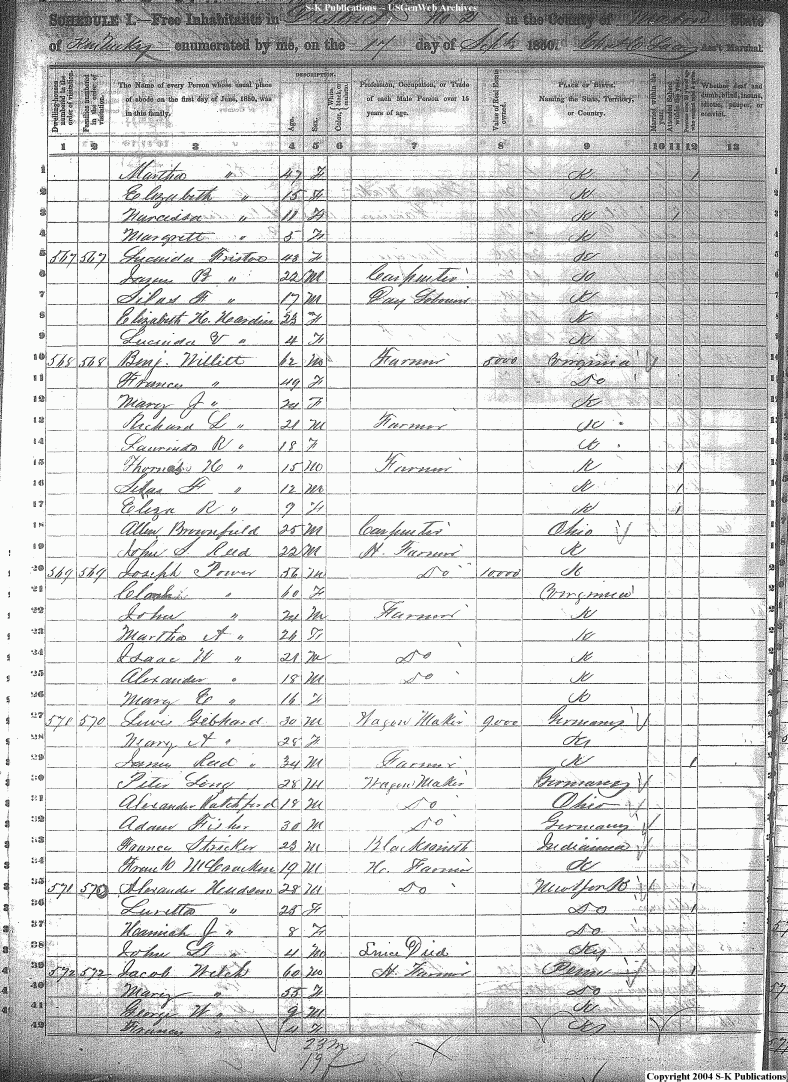 S-K Publications -- USGenWeb Archives
SCHEDULE I.—Free Inhabitants in District No 2 in the County of State
of Kentucky enumerated by me, on the 17 day of Sept 1850. Ass't Marshal.
DESCRIPTION.
Dwelling-houses numbered in the order of visitation.
Families numbered in the order of visitation.
The Name of every Person whose usual place of abode on the first day of June, 1850, was in this family.
Age.
Sex.
Color, White, black, or mulatto.
Profession, Occupation, or Trade of each Male Person over 15 years of age.
Value of Real Estate owned.
PLACE OF BIRTH. Naming the State, Territory, or Country.
Married within the year.
Attended School within the year.
Whether deaf and dumb, blind, insane, idiotic, pauper, or convict.
1 2 3 4 5 6 7 8 9 10 11 12 13
1 Martha " 47 F K 1
2 Elizabeth " 15 F K
3 Narcissa " 11 F K 1
4 Margrett " 5 F K
5 567 567 Lucinda Fristoe 43 F K
6 James B " 22 M Carpenter K
7 Silas F " 17 M Day Laborer K
8 Elizabeth H. Hardin 23 F K
9 Lucinda V " 4 F K
10 568 568 Benj. Willett 62 M Farmer 5000 Virginia
11 Frances " 49 F Do
12 Mary J " 24 F K
13 Richard L " 21 M Farmer K
14 Laurinda R " 18 F K
15 Thomas H " 15 M Farmer K 1
16 Silas F " 12 M K 1
17 Eliza R " 9 F K 1
18 Allen Brownfield 25 M Carpenter Ohio
19 John S Reed 22 M H. Farmer K
20 569 569 Joseph Power 56 M Do 10000 K
21 " 60 F Virginia
22 John " 24 M Farmer K
23 Martha A " 26 F K
24 Isaac W " 21 M Do K
25 Alexander " 18 M Do K
26 Mary E " 16 F K
27 570 570 Lewis Gebhard 30 M Wagon Maker 9000 Germany
28 Mary A " 28 F Ky
29 James Reed " 34 M Farmer K 1
30 Peter Long 28 M Wagon Maker Germany
31 Alexander 18 M Do Ohio
32 Adam Fisher 30 M Do Germany
33 Francis Stricker 23 M Blacksmith Indianna
34 Frank McCracken 19 M H. Farmer K
35 571 570 Alexander Hudson 28 M Do 1
36 Luretta " 25 F Do 1
37 Hannah J " 8 F Do
38 John " 4 M Since Died Ky
39 572 572 Jacob Welch 60 M H. Farmer Penn 1
40 Mary " 55 F Do
41 George W " 9 M K
42 Frances " 4 F Ky
23 M
19 F
Copyright 2004 S-K Publications